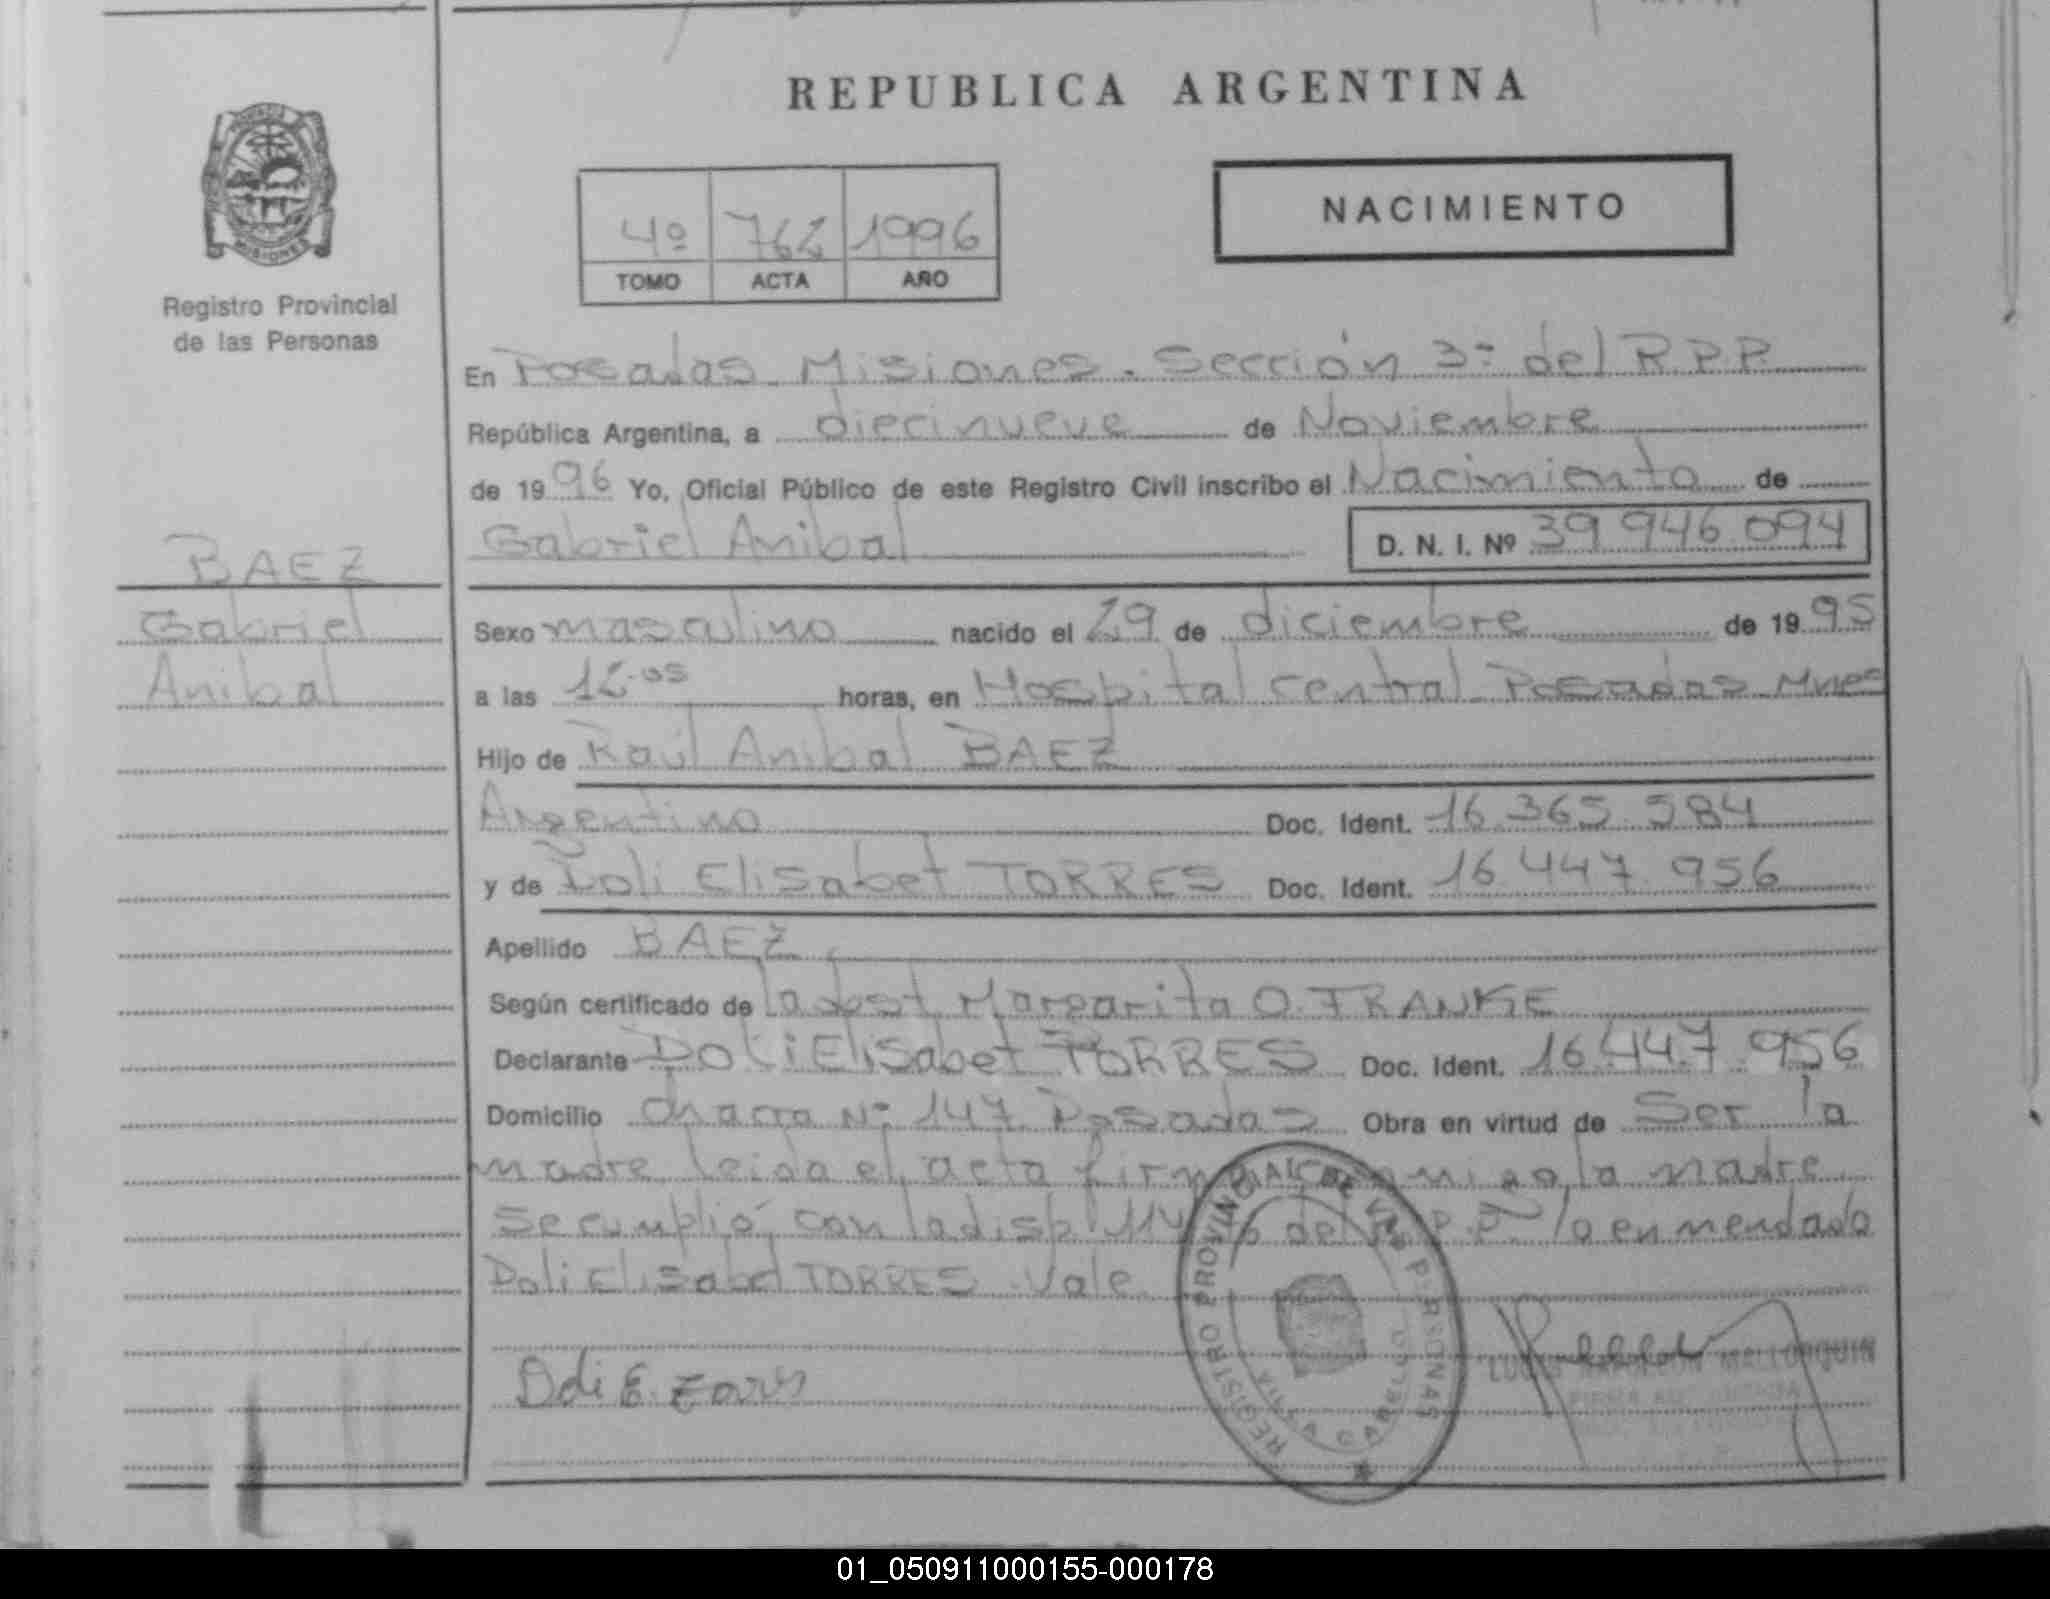 REPUBLICA ARGENTINA
NACIMIENTO
4º 762 1996
TOMO ACTA AÑO
Registro Provincial
de las Personas
En Posadas Misiones. Sección 3ª del R.P.P.
República Argentina, a diecinueve de Noviembre
de 1996 Yo, Oficial Público de este Registro Civil inscribo el Nacimiento de
Gabriel Anibal D. N. I. Nº 39 946 094
BAEZ
Gabriel
Anibal
Sexo masculino nacido el 29 de diciembre de 1995
a las 12.05 horas, en Hospital Central Posadas Mnes
Hijo de Raúl Anibal BAEZ
Argentino Doc. Ident. 16.365.584
y de Doli Elisabet TORRES Doc. Ident. 16 447 956
Apellido BAEZ
Según certificado de la obst Margarita O. FRANKE
Declarante Doli Elisabet TORRES Doc. Ident. 16.447.956
Domicilio Chacra Nº 147 Posadas Obra en virtud de Ser la
madre leida el acta la madre
Se cumplió con la disp del lo enmendado
Doli Elisabet TORRES Vale
REGISTRO PROVINCIAL DE LAS PERSONAS
VILLA CABELLO
Doli E.
LUCIO NAPOLEON MALLORQUIN
FIRMA AUTORIZADA
01_050911000155-000178